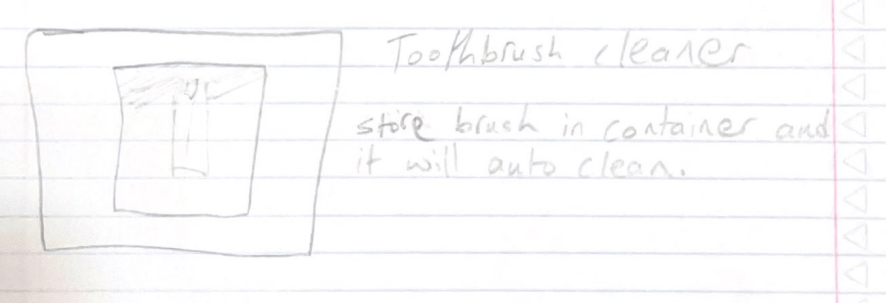 Toothbrush cleaner
store brush in container and
it will auto clean.